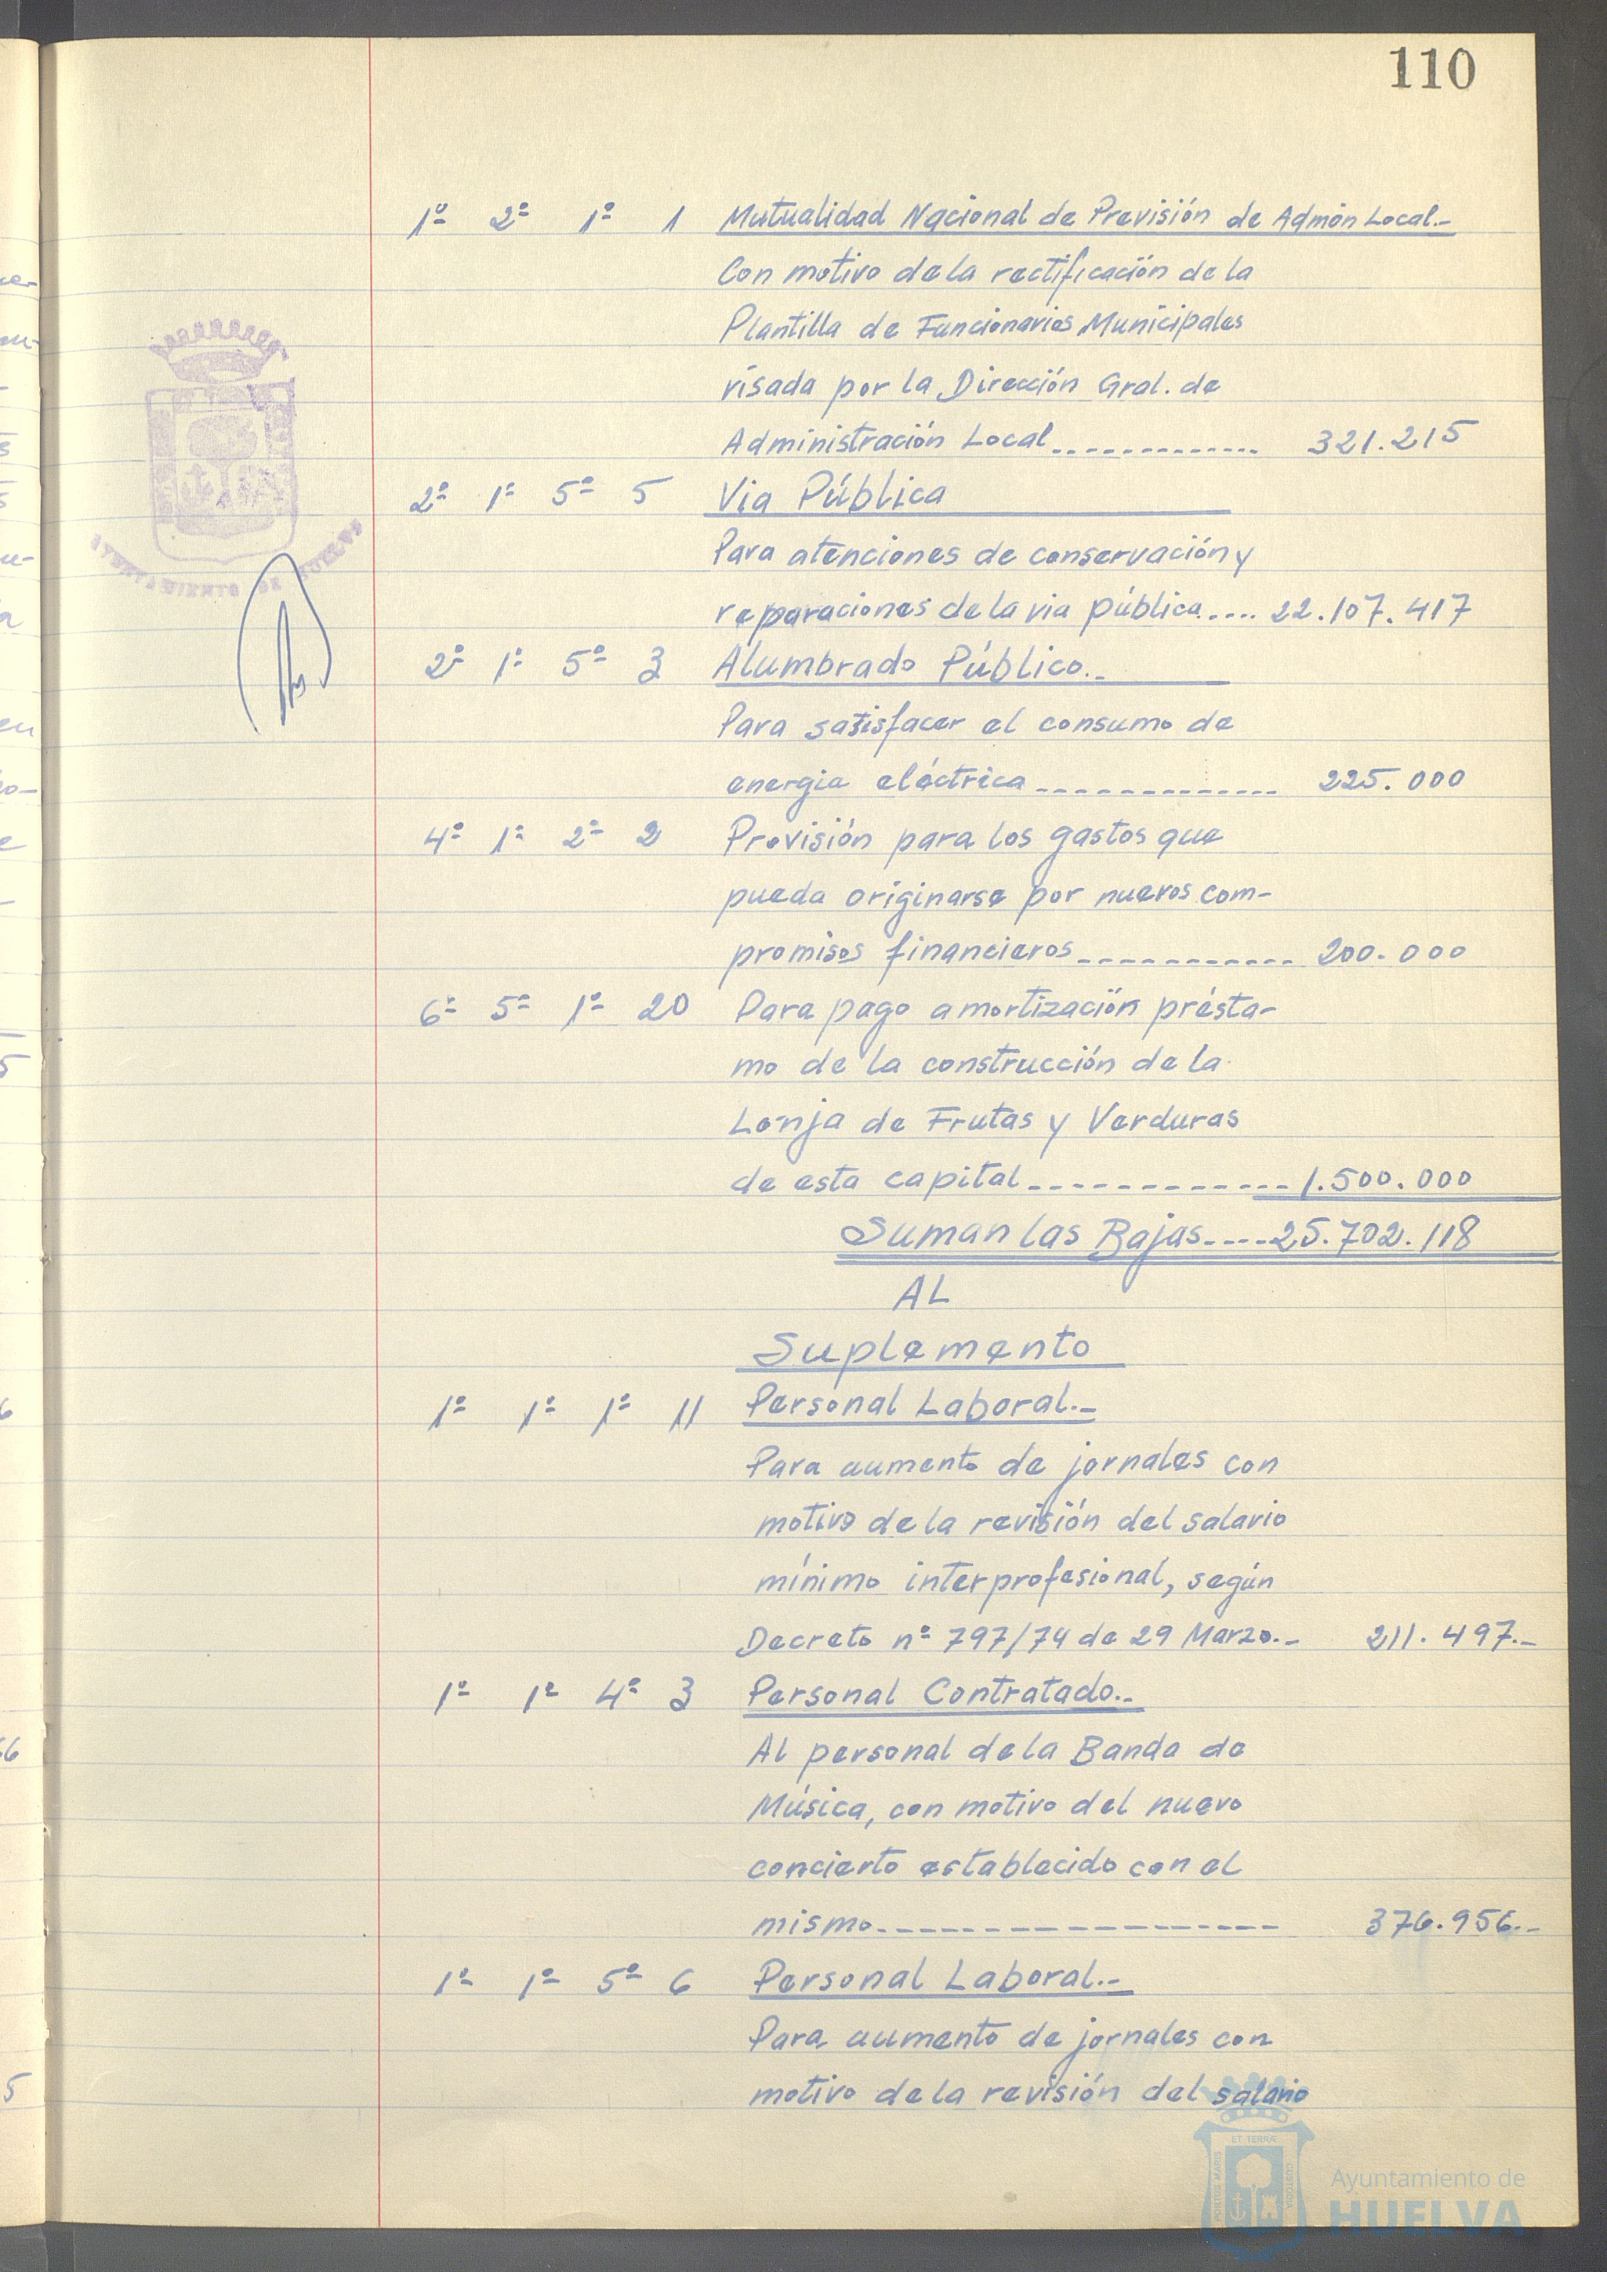 110
1º 2º 1º 1 Mutualidad Nacional de Previsión de Admón Local.-
Con motivo de la rectificación de la
Plantilla de Funcionarios Municipales
visada por la Dirección Gral. de
Administración Local............. 321.215
2º 1º 5º 5 Via Pública
Para atenciones de conservación y
reparaciones de la via pública..... 22.107.417
2º 1º 5º 3 Alumbrado Público.-
Para satisfacer el consumo de
energia eléctrica ------------- 225.000
4º 1º 2º 2 Provisión para los gastos que
pueda originarse por nuevos com-
promisos financieros------------ 200.000
6º 5º 1º 20 Para pago amortización présta-
mo de la construcción de la
Lonja de Frutas y Verduras
de esta capital------------- 1.500.000
Suman las Bajas----25.702.118
AL
Suplemento
1º 1º 1º 11 Personal Laboral.-
Para aumento de jornales con
motivo de la revisión del salario
mínimo interprofesional, según
Decreto nº 797/74 de 29 Marzo.- 211.497.-
1º 1º 4º 3 Personal Contratado.-
Al personal de la Banda de
Música, con motivo del nuevo
concierto establecido con el
mismo------------------ 376.956.-
1º 1º 5º 6 Personal Laboral.-
Para aumento de jornales con
motivo de la revisión del salario
AYUNTAMIENTO DE HUELVA
PORTUS MARIS ET TERRÆ CUSTODIA
Ayuntamiento de
HUELVA